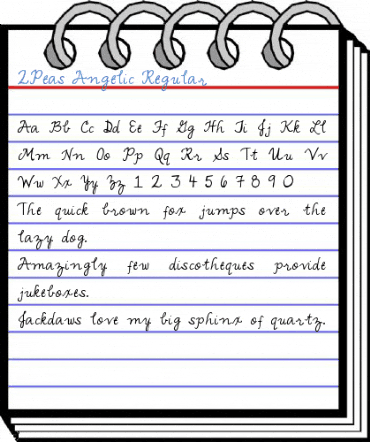 2Peas Angelic Regular
Aa Bb Cc Dd Ee Ff Gg Hh Ii Jj Kk Ll
Mm Nn Oo Pp Qq Rr Ss Tt Uu Vv
Ww Xx Yy Zz 1 2 3 4 5 6 7 8 9 0
The quick brown fox jumps over the
lazy dog.
Amazingly few discotheques provide
jukeboxes.
Jackdaws love my big sphinx of quartz.